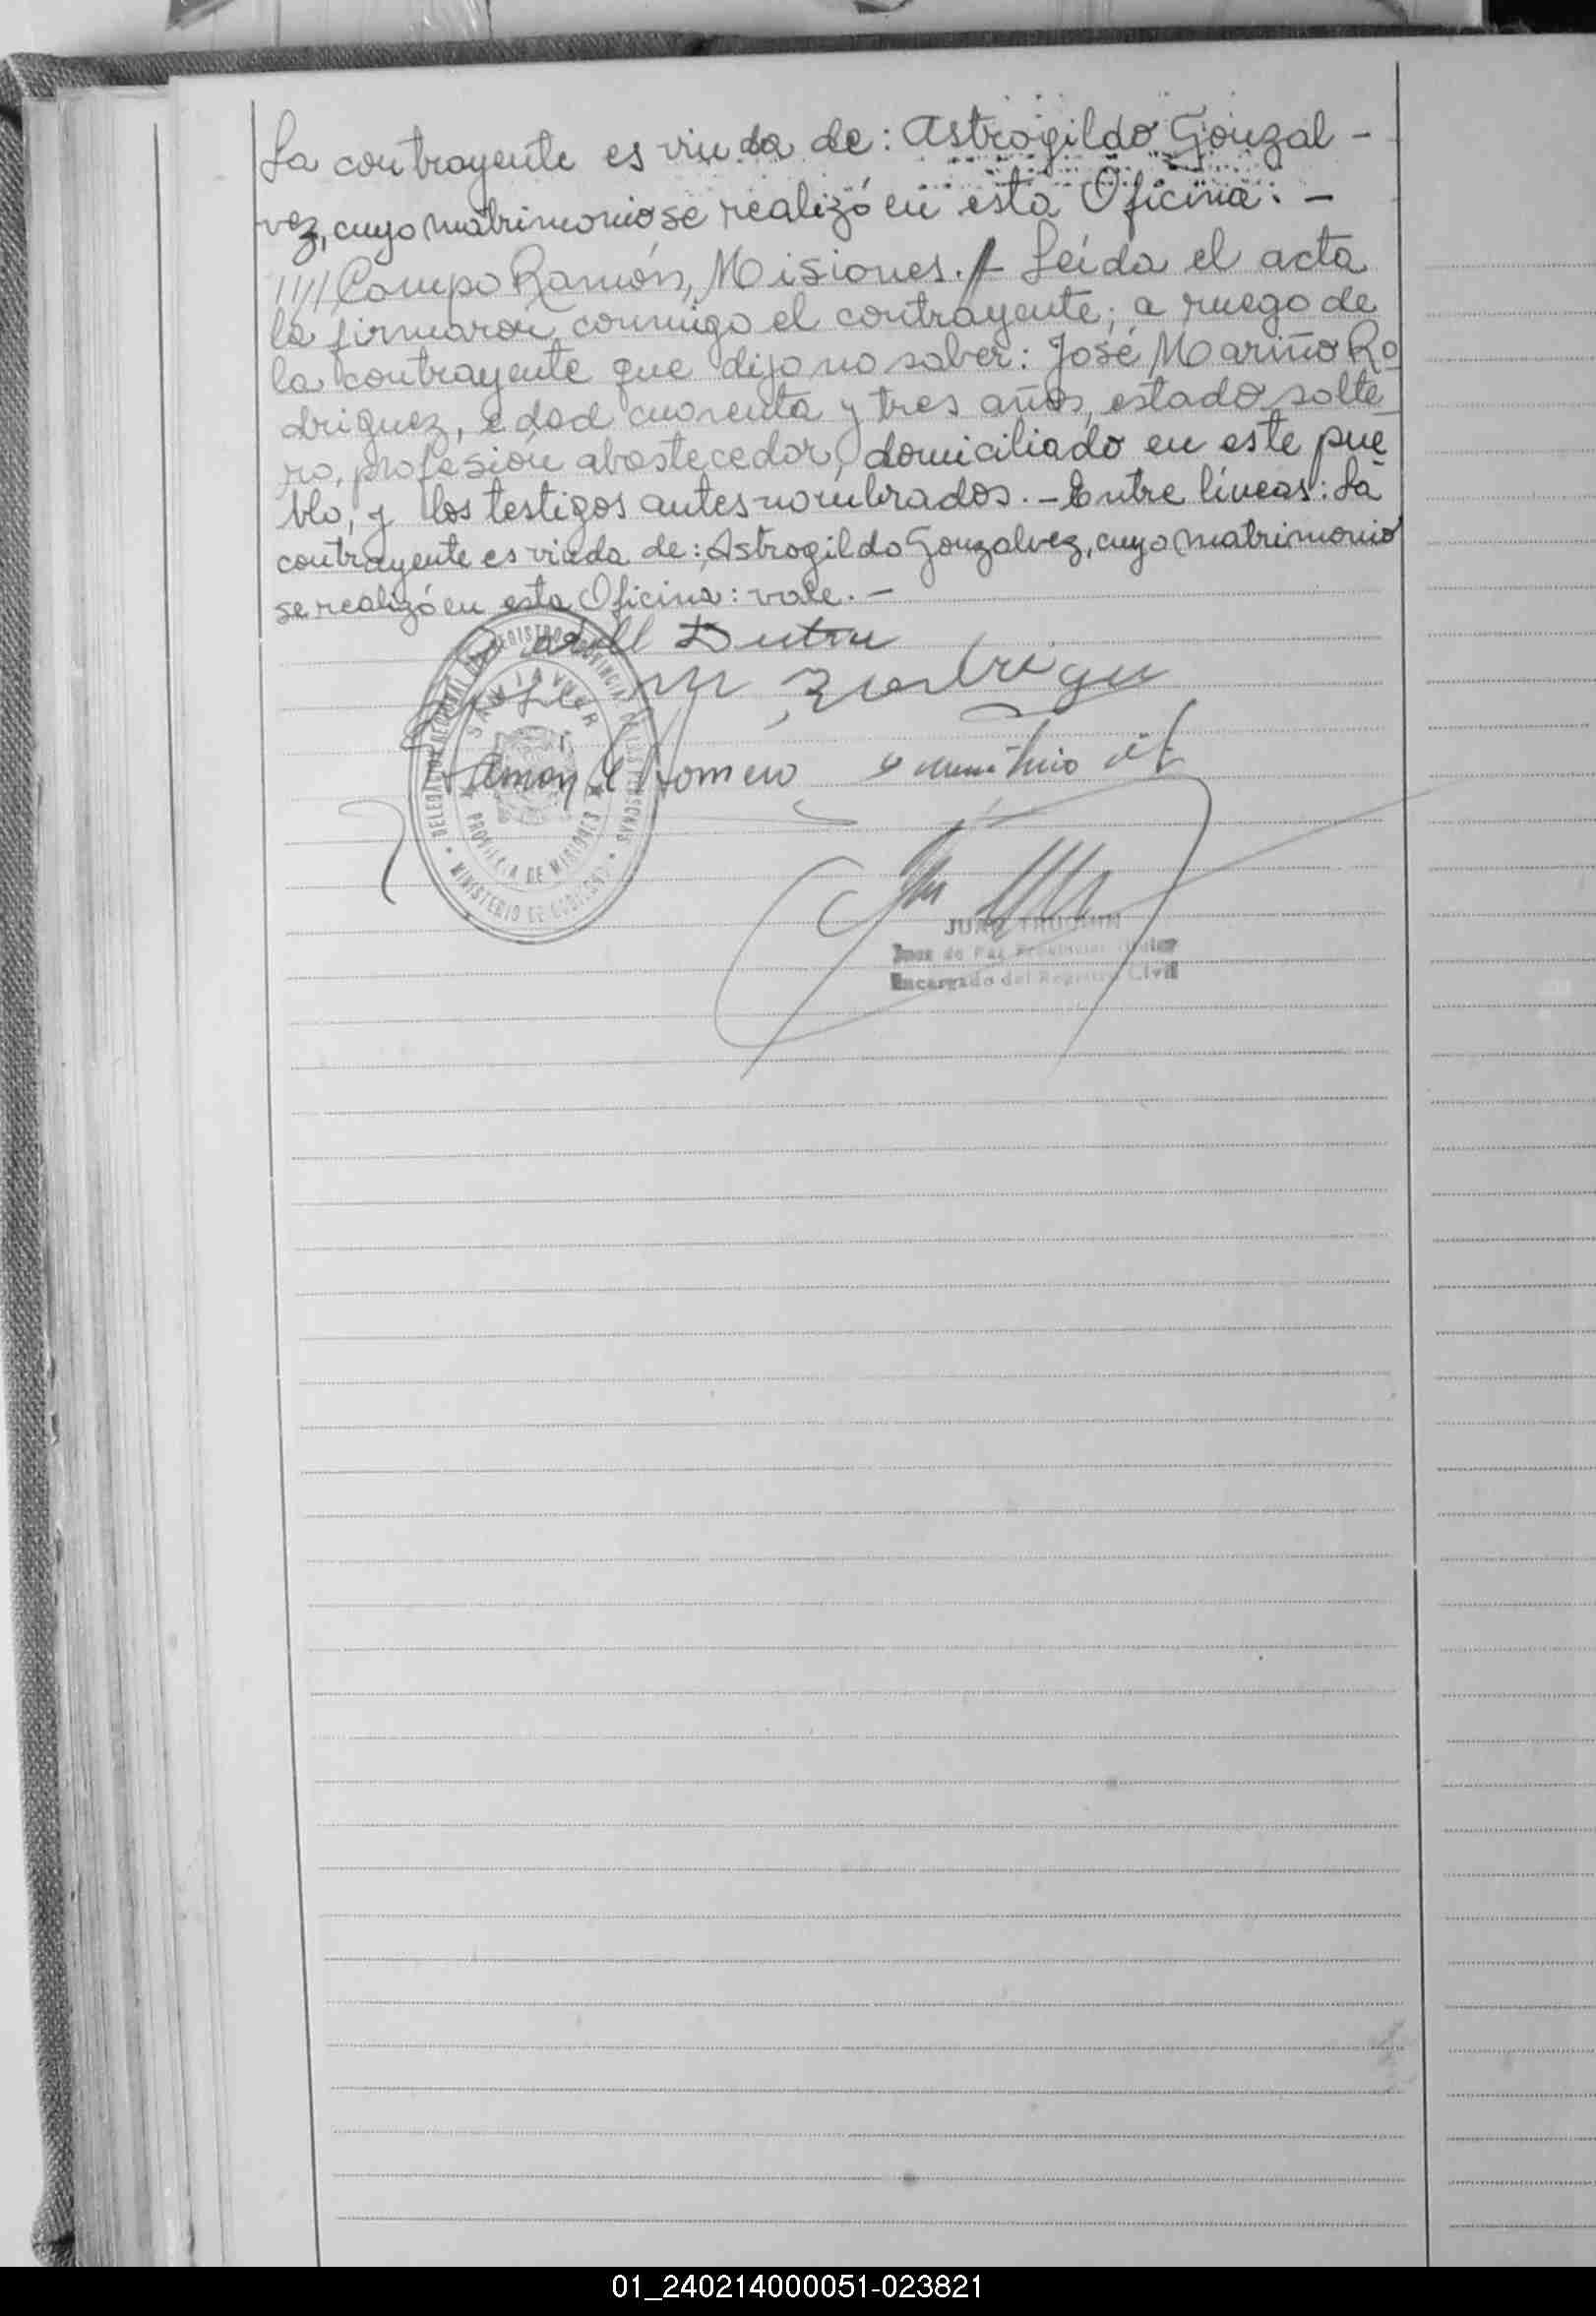 La contrayente es viuda de: Astrogildo Gonzal-
vez, cuyo matrimonio se realizó en esta Oficina: -
//// Campo Ramón, Misiones. - Leída el acta
la firmaron conmigo el contrayente; a ruego de
la contrayente que dijo no saber: José Mariño Ro
driguez, edad cuarenta y tres años, estado solte
ro, profesión abastecedor, domiciliado en este pue
blo, y los testigos antes nombrados. - Entre líneas: La
contrayente es viuda de: Astrogildo Gonzalvez, cuyo matrimonio
se realizó en esta Oficina: vale. -
Dutra
Ramon Romero
SAN JAVIER
PROVINCIA DE MISIONES
MINISTERIO DE GOBIERNO
JUAN
Juez de Paz
Encargado del Registro Civil
01_240214000051-023821